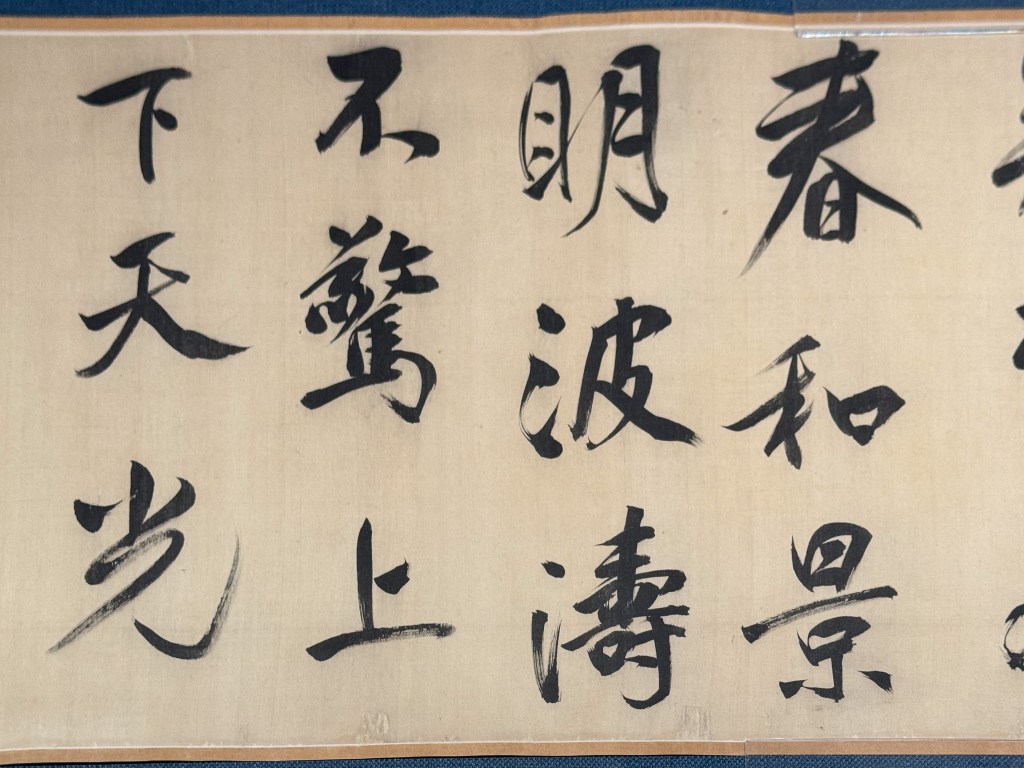 春和景
明波濤
不驚上
下天光